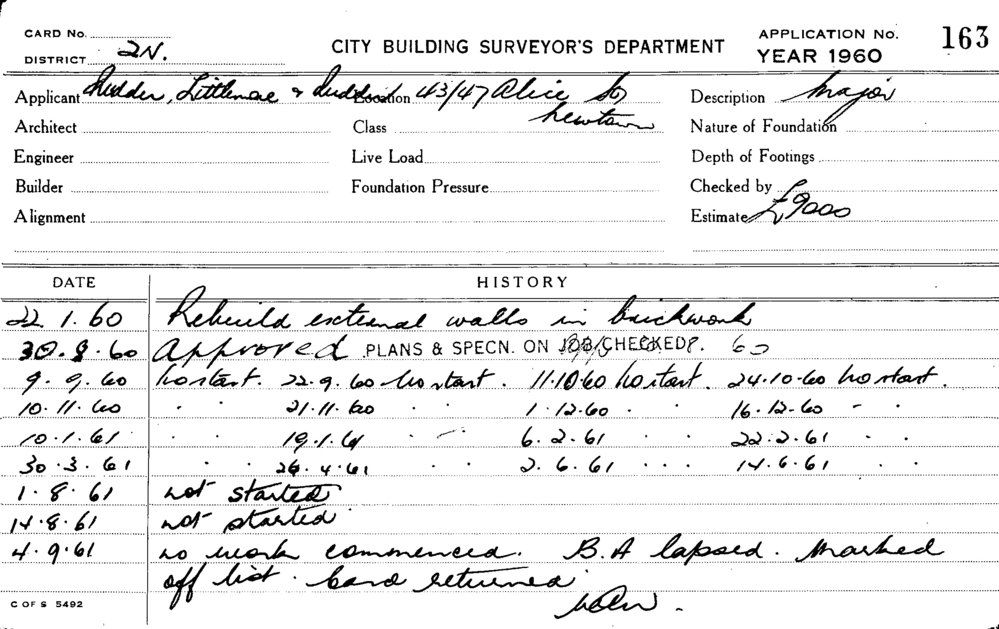 CARD No.
CITY BUILDING SURVEYOR'S DEPARTMENT
APPLICATION No. 163
DISTRICT 2N.
YEAR 1960
Applicant Rudder, Littlemore & Rudder Location 43/47 Alice St Description Major
Newtown
Architect Class Nature of Foundation
Engineer Live Load Depth of Footings
Builder Foundation Pressure Checked by
Alignment Estimate £9000
DATE HISTORY
22.1.60 Rebuild external walls in brickwork
30.8.60 Approved PLANS & SPECN. ON JOB/CHECKED 60
9.9.60 No start. 22.9.60 No start. 11.10.60 No start. 24.10.60 No start.
10.11.60 " " 21.11.60 " " 1.12.60 " " 16.12.60 " "
10.1.61 " " 19.1.61 " " 6.2.61 " " 22.2.61 " "
30.3.61 " " 26.4.61 " " 2.6.61 " " 14.6.61 " "
1.8.61 not started
14.8.61 not started
4.9.61 no work commenced. B.A lapsed. Marked
off list. Card returned
C OF S 5492